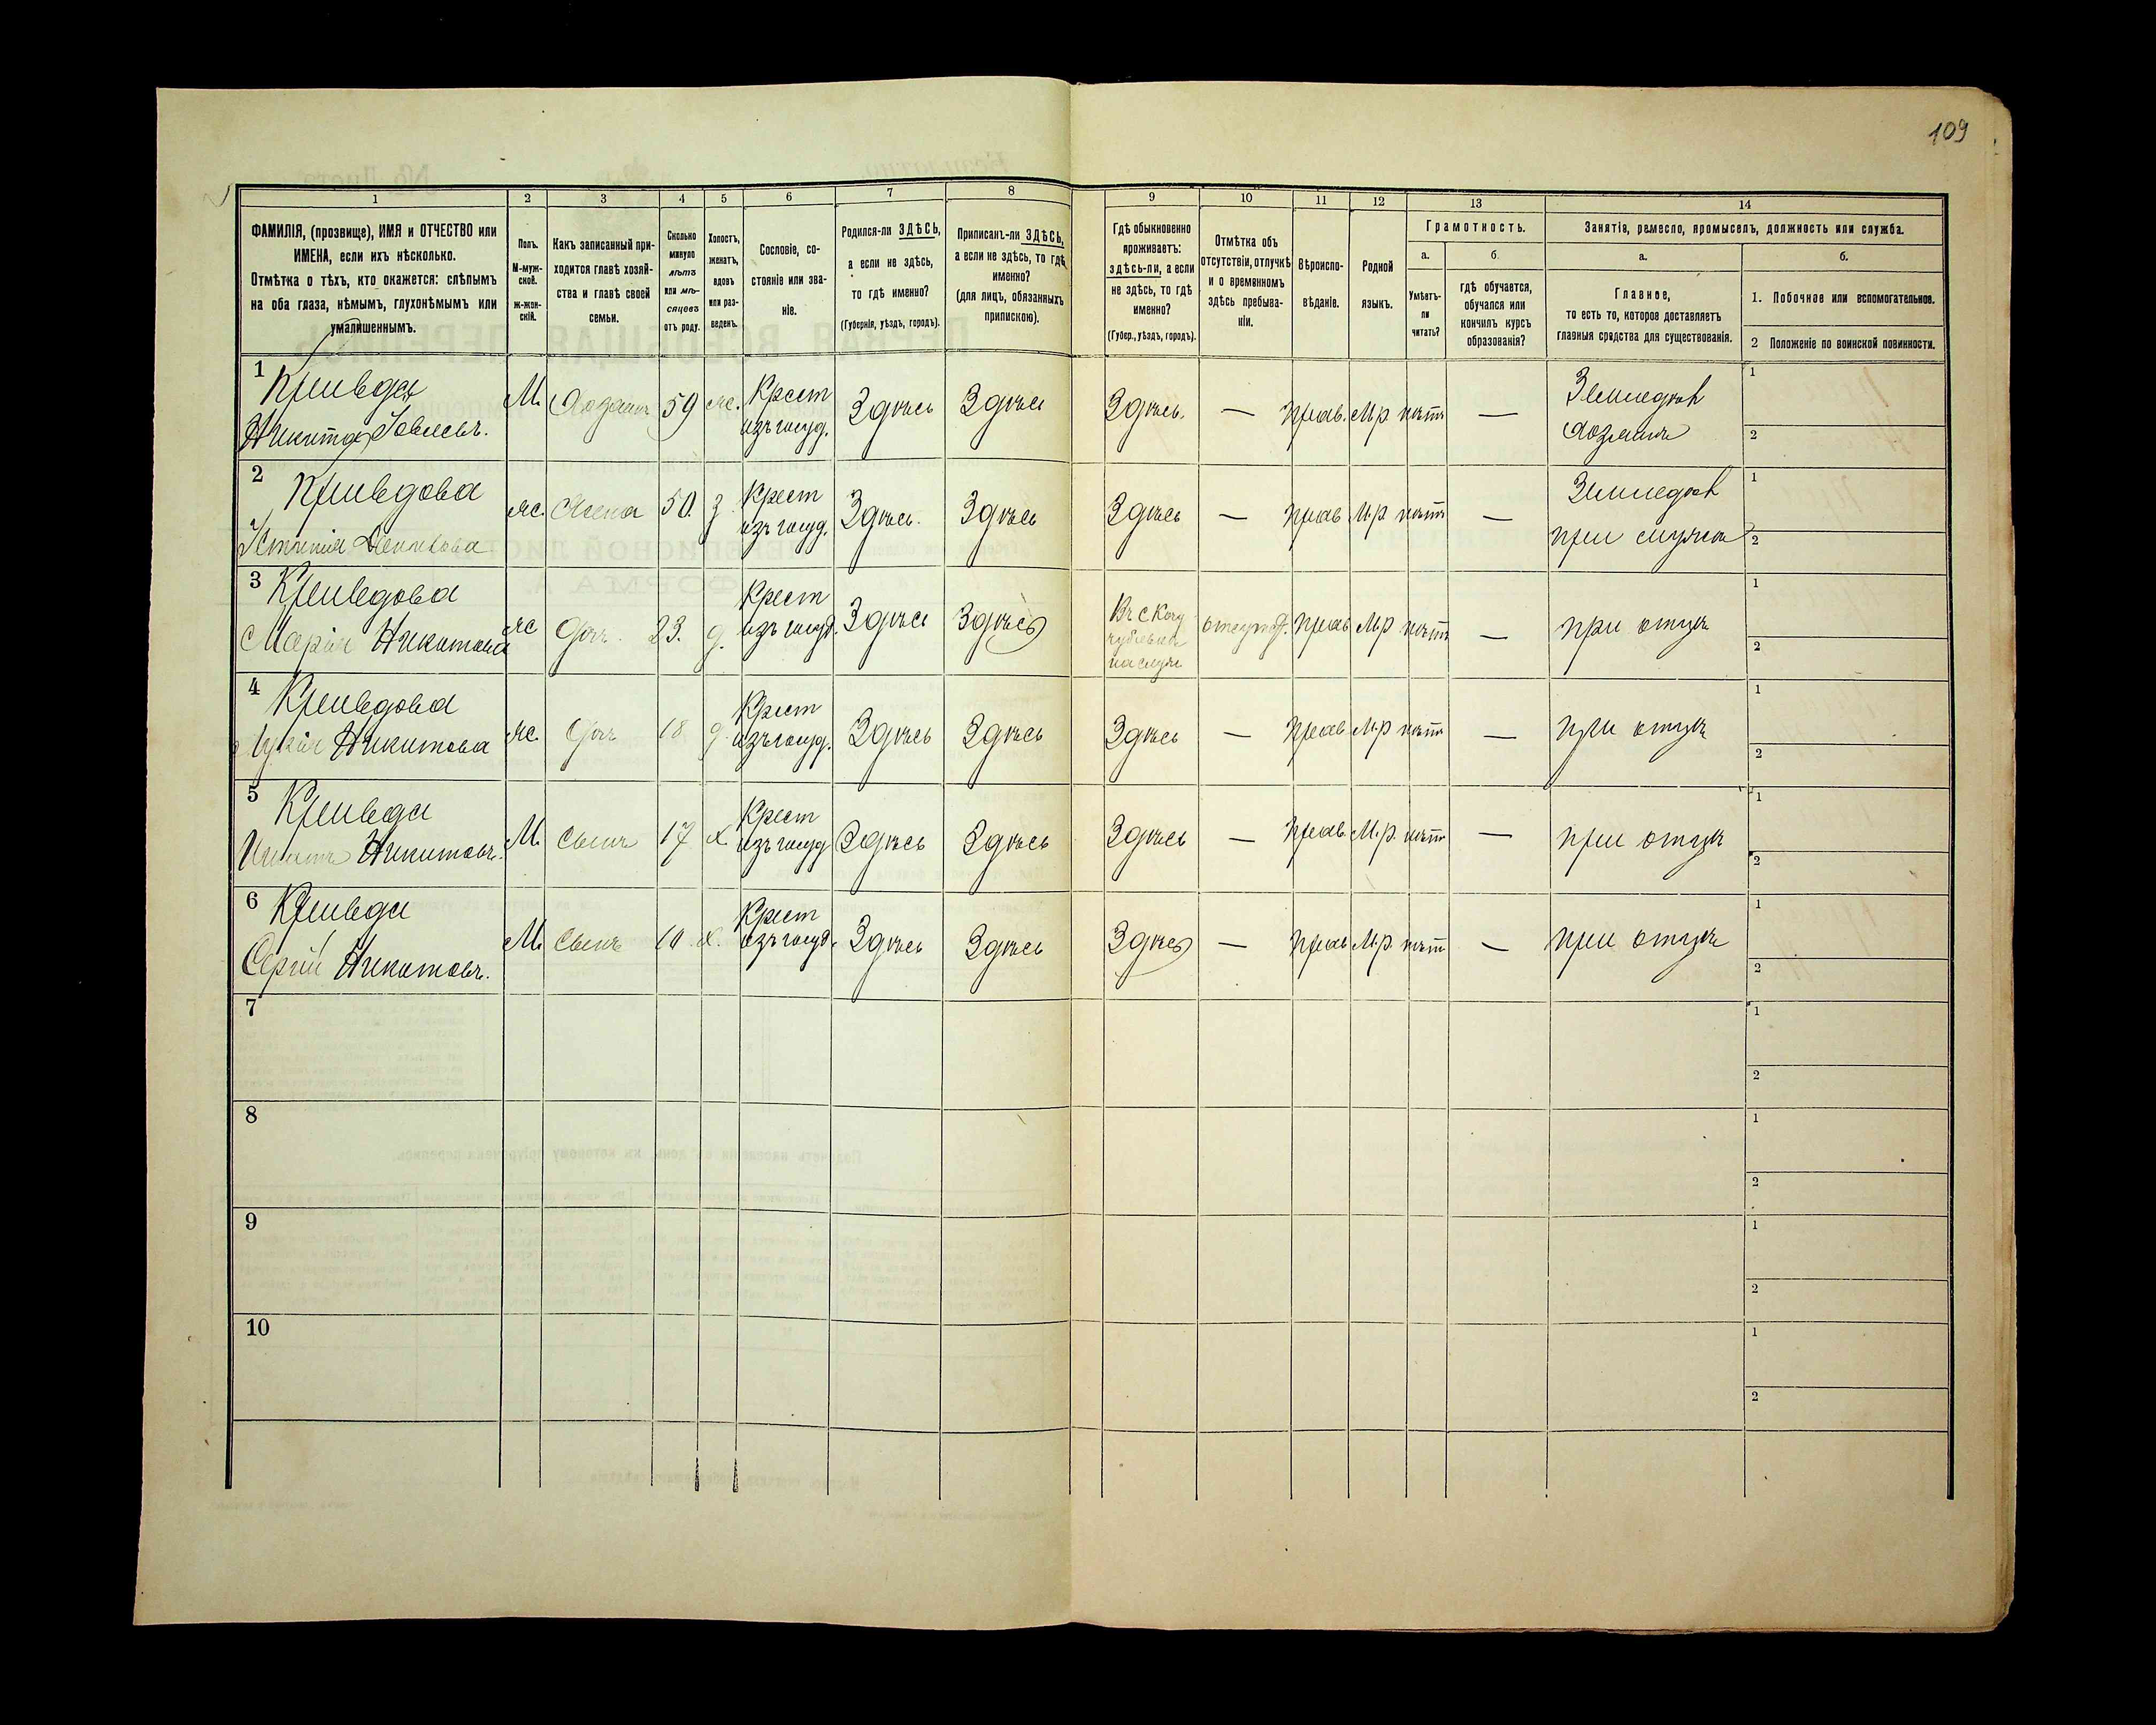 109
1 2 3 4 5 6 7 8 9 10 11 12 13 14
ФАМИЛІЯ, (прозвище), ИМЯ и ОТЧЕСТВО или
ИМЕНА, если ихъ нѣсколько.
Отмѣтка о тѣхъ, кто окажется: слѣпымъ
на оба глаза, нѣмымъ, глухонѣмымъ или
умалишеннымъ.
Полъ.
М-муж-
ской.
ж-жен-
скій.
Какъ записанный при-
ходится главѣ хозяй-
ства и главѣ своей
семьи.
Сколько
минуло
лѣтъ
или мѣ-
сяцевъ
отъ роду.
Холостъ,
женатъ,
вдовъ
или раз-
веденъ.
Сословіе, со-
стояніе или зва-
ніе.
Родился-ли ЗДѢСЬ,
а если не здѣсь,
то гдѣ именно?
(Губернія, уѣздъ, городъ).
Приписанъ-ли ЗДѢСЬ,
а если не здѣсь, то гдѣ
именно?
(для лицъ, обязанныхъ
припискою).
Гдѣ обыкновенно
проживаетъ:
здѣсь-ли, а если
не здѣсь, то гдѣ
именно?
(Губер., уѣздъ, городъ).
Отмѣтка объ
отсутствіи, отлучкѣ
и о временномъ
здѣсь пребыва-
ніи.
Вѣроиспо-
вѣданіе.
Родной
языкъ.
Грамотность.
а.
Умѣетъ-
ли
читать?
б.
гдѣ обучается,
обучался или
кончилъ курсъ
образованія?
Занятія, ремесло, промыселъ, должность или служба.
а.
Главное,
то есть то, которое доставляетъ
главныя средства для существованія.
б.
1. Побочное или вспомогательное.
2 Положеніе по воинской повинности.
1 Кривда
Никита Іовлевъ.
М. Хозяинъ 59 ж. Крест
изъ госуд. Здѣсь Здѣсь Здѣсь. — прав. М.р. нѣтъ — Земледѣл
хозяинъ
1
2
2 Кривдова
Устинія
ж. Жена 50. з Крест
изъ госуд. Здѣсь. Здѣсь Здѣсь — прав М.р. нѣтъ — Земледѣл
при мужѣ
1
2
3 Кривдова
Марія Никитова
ж Доч. 23. д. Крест
изъ госуд. Здѣсь Здѣсь отсутст. прав М.р нѣтъ — при отцѣ
1
2
4 Кривдова
Никитова
ж. Доч 18 д. Крест
изъ госуд. Здѣсь Здѣсь Здѣсь — прав М.р нѣтъ — при отцѣ
1
2
5 Кривда
Никитовъ.
М. Сынъ 17 х. Крест
изъ госуд Здѣсь Здѣсь Здѣсь — прав. М.р. нѣтъ — при отцѣ
1
2
6 Кривда
Сергій Никитовъ.
М. Сынъ 10 х. Крест
изъ госуд. Здѣсь Здѣсь Здѣсь — прав М.р. нѣтъ — при отцѣ
1
2
7
1
2
8
1
2
9
1
2
10
1
2